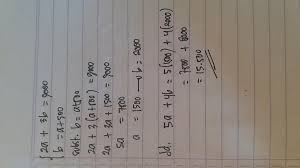 2a + 3b = 9000
b = a+500
subst. b = a+500
2a + 3(a+500) = 9000
2a + 3a + 1500 = 9000
5a = 7500
a = 1500 → b = 2000
dd. 5a + 4b = 5(1500) + 4(2000)
= 7500 + 8000
= 15.500